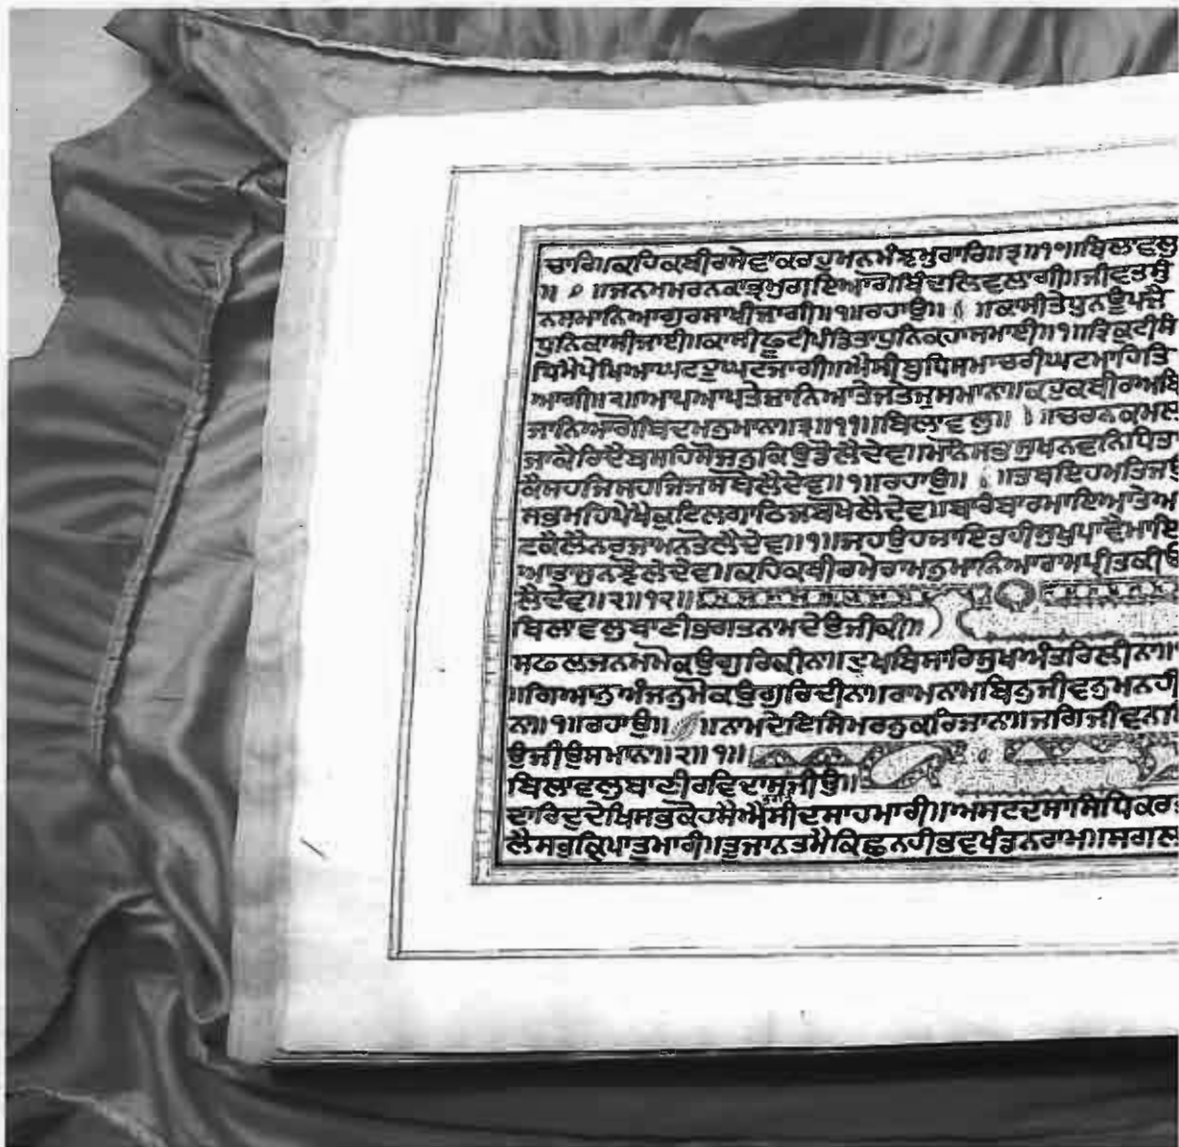 ਚਾਰਿ॥ਕਹਿਕਬੀਰਸੇਵਾਕਰਹੁਮਨਮੰਝਮੁਰਾਰਿ॥੩॥੧੦॥ਬਿਲਾਵਲੁ
॥ ॥ਜਨਮਮਰਨਕਾਭ੍ਰਮੁਗਇਆਗੋਬਿੰਦਲਿਵਲਾਗੀ॥ਜੀਵਤਸੁੰ
ਨਸਮਾਨਿਆਗੁਰਸਾਖੀਜਾਗੀ॥੧॥ਰਹਾਉ॥ ॥ਕਾਸੀਤੇਧੁਨਊਪਜੈ
ਧੁਨਿਕਾਸੀਜਾਈ॥ਕਾਸੀਫੂਟੀਪੰਡਿਤਾਧੁਨਿਕਹਾਂਸਮਾਈ॥੧॥ਤ੍ਰਿਕੁਟੀਸੰ
ਧਿਮੈਪੇਖਿਆਘਟਹੂਘਟਜਾਗੀ॥ਐਸੀਬੁਧਿਸਮਾਚਰੀਘਟਮਾਹਿਤਿ
ਆਗੀ॥੨॥ਆਪੁਆਪਤੇਜਾਨਿਆਤੇਜਤੇਜੁਸਮਾਨਾ॥ਕਹੁਕਬੀਰਅਬਿ
ਜਾਨਿਆਗੋਬਿਦਮਨੁਮਾਨਾ॥੩॥੧੧॥ਬਿਲਾਵਲੁ॥ ॥ਚਰਨਕਮਲ
ਜਾਕੈਰਿਦੈਬਸਹਿਸੋਜਨੁਕਿਉਡੋਲੈਦੇਵ॥ਮਾਨੌਸਭਸੁਖਨਵਨਿਧਿਤਾ
ਕੈਸਹਜਿਸਹਜਿਜਸਬੋਲੈਦੇਵ॥੧॥ਰਹਾਉ॥ ॥ਤਬਇਹਮਤਿਜਉ
ਸਭਮਹਿਪੇਖੈਕੁਟਿਲਗਾਂਠਿਜਬਖੋਲੈਦੇਵ॥ਬਾਰੰਬਾਰਮਾਇਆਤੇਅ
ਟਕੈਲੈਨਰਜਾਮਨਤੋਲੈਦੇਵ॥੧॥ਜਹਉਹਜਾਇਤਹੀਸੁਖੁਪਾਵੈਮਾਇ
ਆਤਾਸੁਨਝੋਲੈਦੇਵ॥ਕਹਿਕਬੀਰਮੇਰਾਮਨੁਮਾਨਿਆਰਾਮਪ੍ਰੀਤਿਕੀਓ
ਲੈਦੇਵ॥੨॥੧੨॥
ਬਿਲਾਵਲੁਬਾਣੀਭਗਤਨਾਮਦੇਉਜੀਕੀ॥
ਸਫਲਜਨਮਮੋਕਉਗੁਰਿਕੀਨਾ॥ਦੁਖਬਿਸਾਰਿਸੁਖਅੰਤਰਿਲੀਨਾ॥
॥ਗਿਆਨੁਅੰਜਨੁਮੋਕਉਗੁਰਿਦੀਨਾ॥ਰਾਮਨਾਮਬਿਨੁਜੀਵਨੁਮਨਹੀ
ਨਾ॥੧॥ਰਹਾਉ॥ ॥ਨਾਮਦੇਇਸਿਮਰਨੁਕਰਿਜਾਨਾ॥ਜਗਿਜੀਵਨਾ
ਉਜੀਉਸਮਾਨਾ॥੨॥੧॥
ਬਿਲਾਵਲੁਬਾਣੀਰਵਿਦਾਸੁਜੀਉ॥
ਦਾਰਿਦੁਦੇਖਿਸਭਕੋਹਸੈਐਸੀਦਸਾਹਮਾਰੀ॥ਅਸਟਦਸਾਸਿਧਿਕਰ
ਲੈਸਭਕ੍ਰਿਪਾਤੁਮਾਰੀ॥ਤੂਜਾਨਤਮੈਕਿਛੁਨਹੀਭਵਖੰਡਨਰਾਮ॥ਸਗਲ